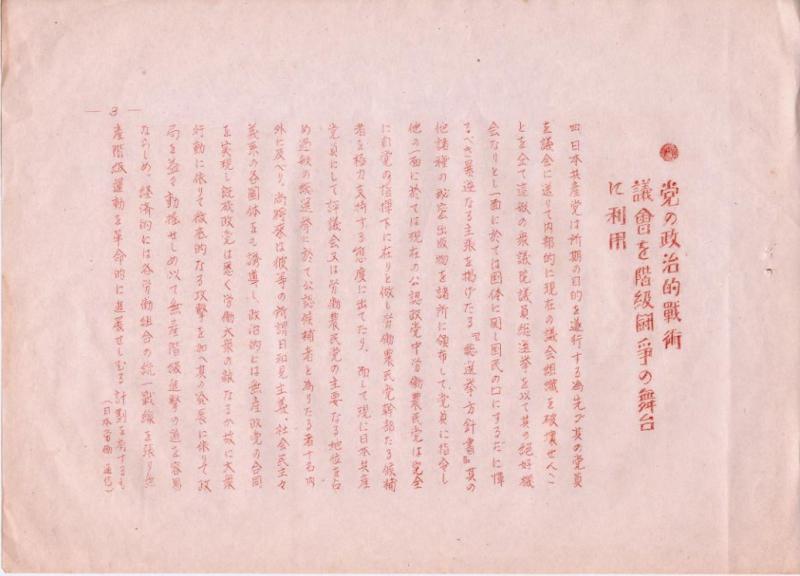 党の政治的戰術
議會を階級闘爭の舞台
に利用
四、日本共産党は所期の目的を遂行する為先づ其の党員
を議会に送りて内部的に現在の議会組織を破壊せんこ
とを企て這般の衆議院議員総選挙を以て其の絶好機
会なりとし一面に於ては国体に関し国民の口にするだに憚
るべき悪逆なる主張を掲げたる『総選挙方針書』其の
他諸種の秘密出版物を諸所に領布して、党員に指令し
他の一面に於ては現在の公認政党中労働農民党は完全
に自党の指揮下に在りと做し労働農民党幹部たる候補
者を極力支持する態度に出てたり、而して現に日本共産
党員にして評議会又は労働農民党の主要なる地位を占
め這般の総選挙に於て公認候補者と為りたる者十名内
外に及べり、尚将来は彼等の所謂日和見主義、社会民主々
義系の各団体をも誘導し、政治的には無産政党の合同
を実現し既成政党は悉く労働大衆の敵なるが故に大衆
行動に依りて徹底的なる攻撃を加へ其の発展に依りて政
局を益々動揺せしめ以て無産階級進撃の道を容易
ならしめ、経済的には各労働組合の統一戦線を張り無
産階級運動を革命的に進展せしむる計劃を有するも
(日本電通通信)
— 3 —